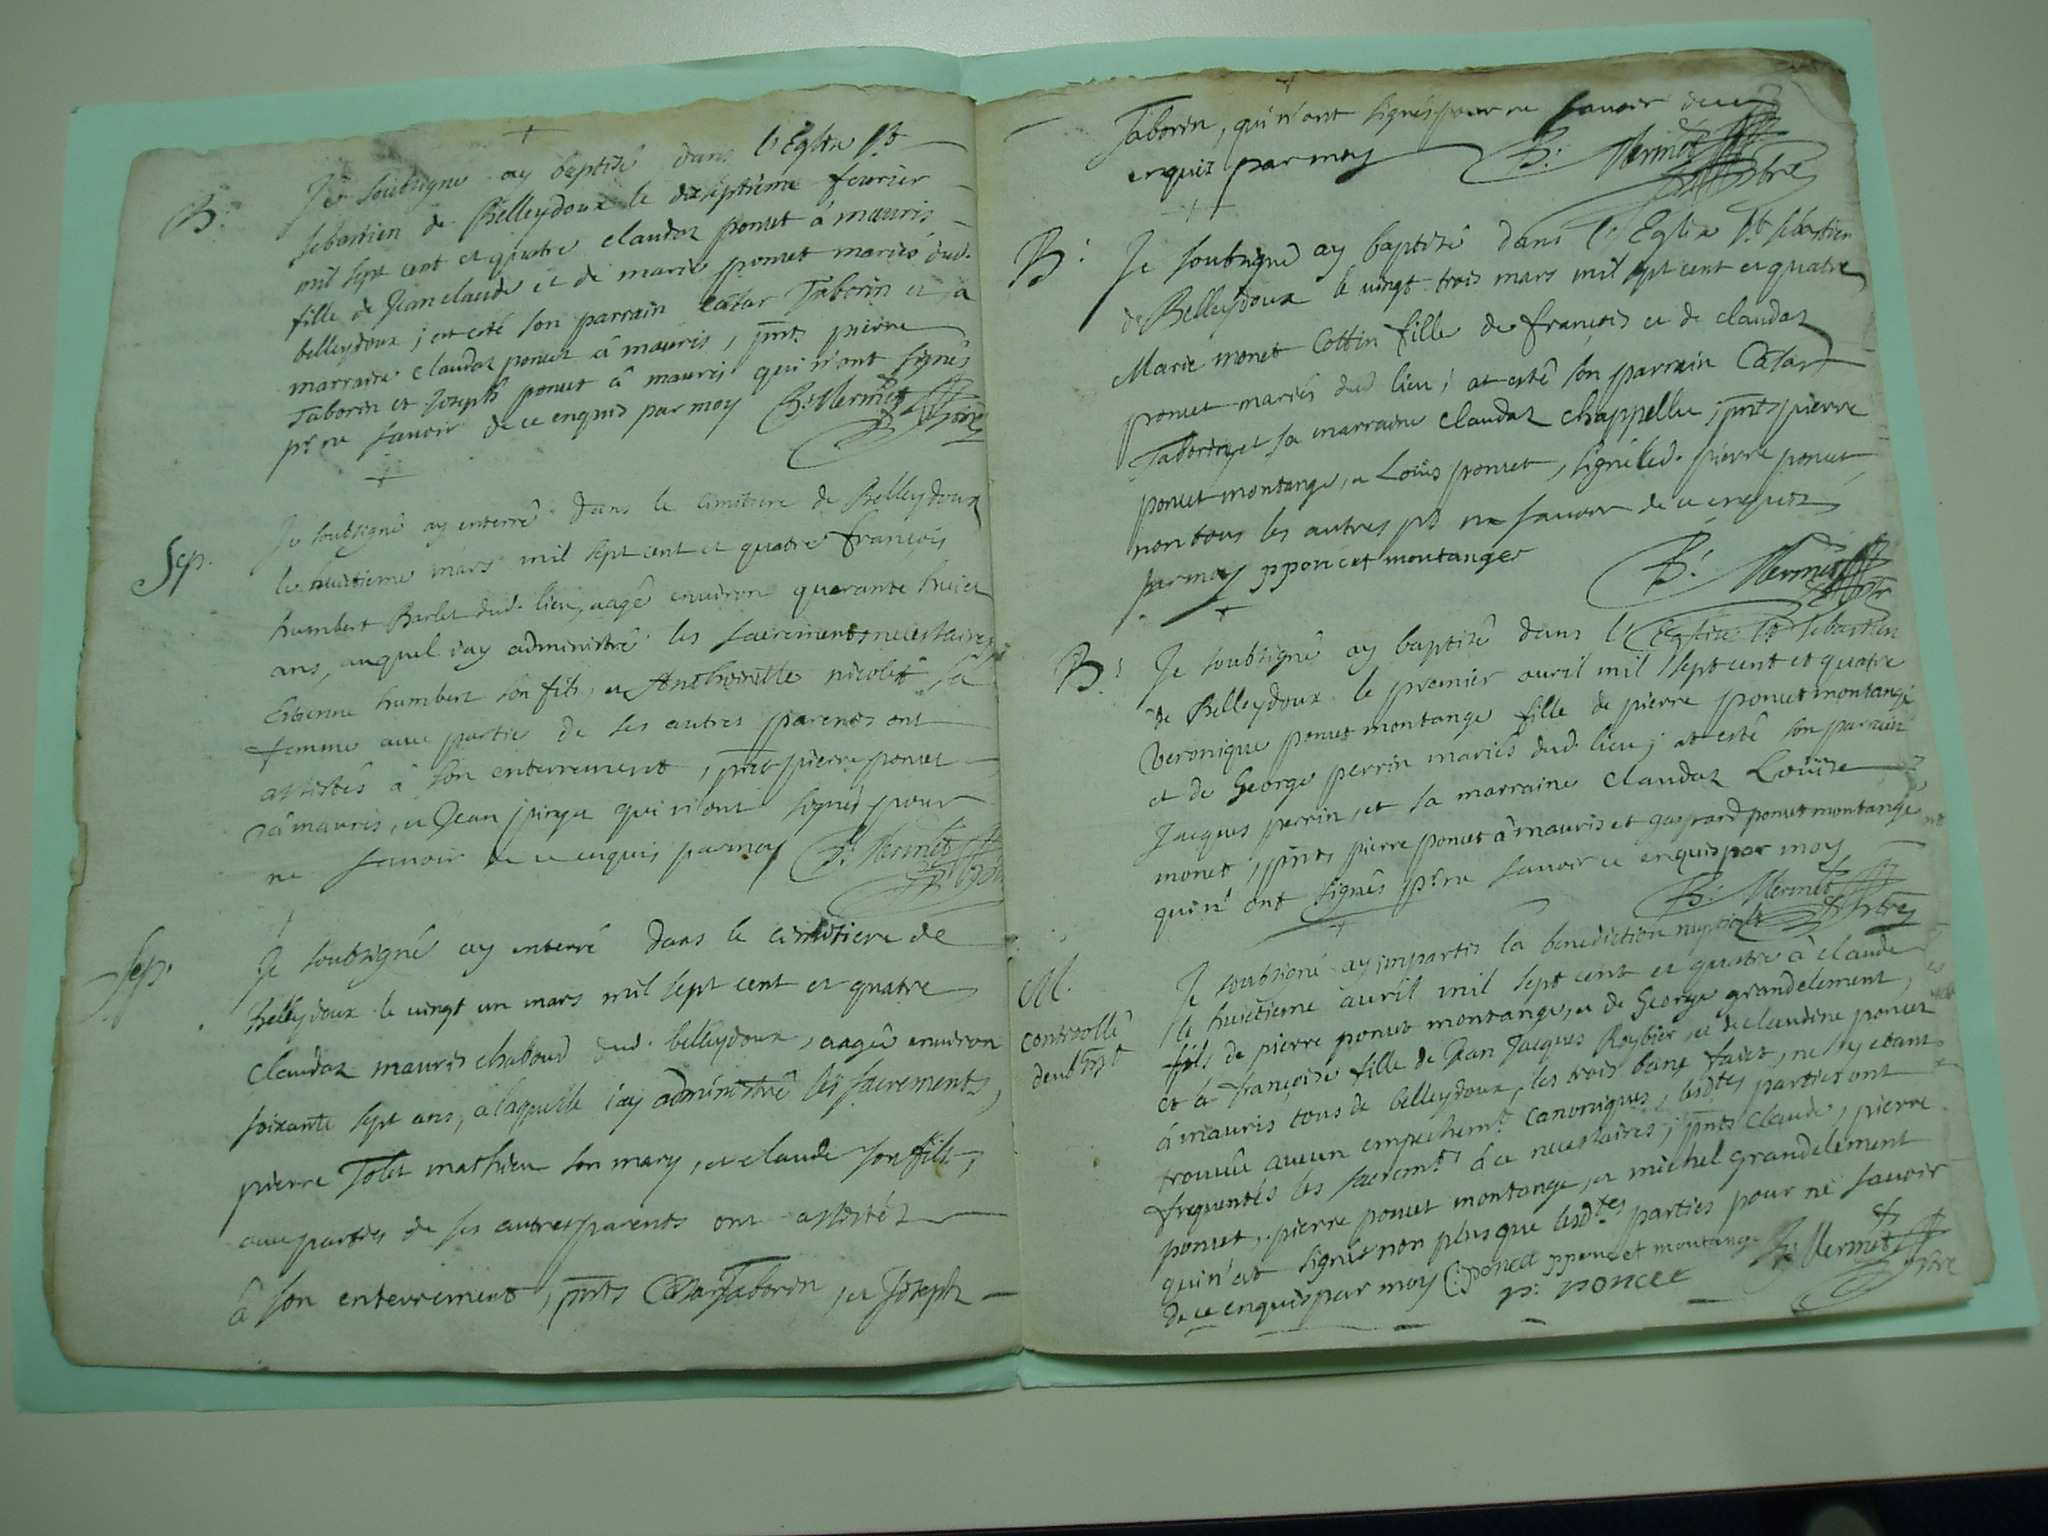 B. Je soubsigné ay baptisé dans l'Eglise St
sebastien de Belleydoux le dixseptieme feurier
mil sept cent et quatre claudaz poncet à mauris
fille de Jean claude et de marie poncet mariés dud.
belleydoux; at esté son parrain César Taborin et sa
marraine claudaz poncet à mauris, pnts pierre
Taborin et Joseph poncet à mauris qui n'ont signés
pr ne sauoir de ce enquis par moy B. Mermet
Sep. Je soubsigné ay enterré dans le cimitiere de Belleydoux
le huitieme mars mil sept cent et quatre françois
humbert Barlet dud. lieu, aagé enuiron quarante huict
ans, auquel i'ay administré les sacrements necessaires
Estienne humbert son fils, et Anthoinette nicolet sa
femme auec partie de ses autres parents ont
assistés à son enterrement, pnts pierre poncet
à mauris, et Jean qui n'ont signés pour
ne sauoir de ce enquis par moy B. Mermet
Sep. Je soubsigné ay enterré dans le cimitiere de
Belleydoux le uingt un mars mil sept cent et quatre
claudaz mauris chaboud dud. belleydoux, aagée enuiron
soixante sept ans, a laquelle i'ay administré les sacrements,
pierre Tolet mathieu son mary, et claude son fils,
auec parties de ses autres parents ont assistéz
à son enterrement, pnts César Taborin, et Joseph
Taborin, qui n'ont signés pour ne sauoir de ce
enquis par moy B. Mermet
B. Je soubsigné ay baptisé dans l'Eglise St sebastien
de Belleydoux le uingt trois mars mil sept cent et quatre
Marie monet Cottin fille de françois et de claudaz
poncet mariés dud. lieu; at esté son parrain César
Taborin, et sa marraine claudaz chappellu, pnts pierre
poncet montange, et Loüis poncet, signé led. pierre poncet
non tous les autres pr ne sauoir de ce enquis
par moy pponcet montange B. Mermet
B. Je soubsigné ay baptisé dans l'Eglise St sebastien
de Belleydoux le premier auril mil sept cent et quatre
Veronique poncet montange fille de pierre poncet montange
et de George perrin mariés dud. lieu; at esté son parain
Jacques perrin, et sa marraine claudaz Loüise
monet, pnts pierre poncet à mauris et gaspard poncet montange
qui n'ont signés pr ne sauoir ce enquis par moy
B. Mermet
M. Je soubsigné ay impartis la benediction nuptiale
le huictieme auril mil sept cent et quatre à claude
controllé fils de pierre poncet montange, et de George grandclement,
et à françoise fille de Jean Jacques Roybier, et de claudine poncet
à mauris tous de belleydoux, les trois bans faict, ne s'y étant
trouuée aucun empechemt canoniques, lesdtes parties ont
frequentés les sacremts à ce necessaires, pnts claude, pierre
poncet, pierre poncet montange, et michel grandclement
qui n'at signé non plus que lesdtes parties pour ne sauoir
de ce enquis par moy C. poncet pponcet montange B. Mermet
p. poncet